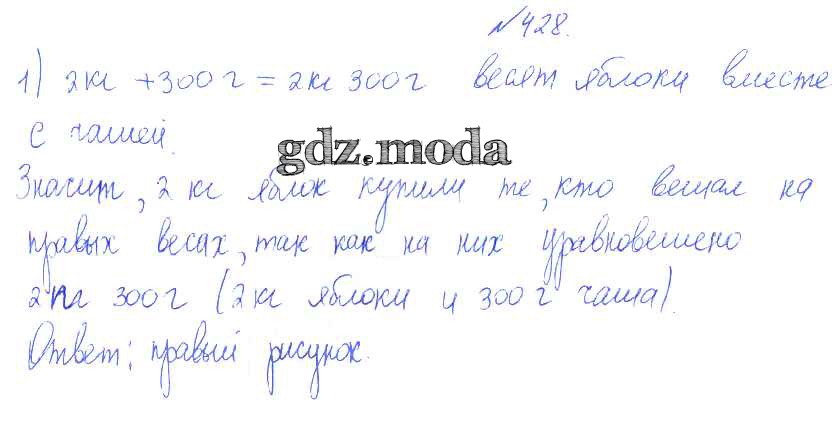 №428.
1) 2кг + 300г = 2кг 300г весят яблоки вместе
с чашей.
gdz.moda
Значит, 2 кг яблок купили те, кто вешал на
правых весах, так как на них уравновешено
2кг 300г (2кг яблоки и 300г чаша).
Ответ: правый рисунок.